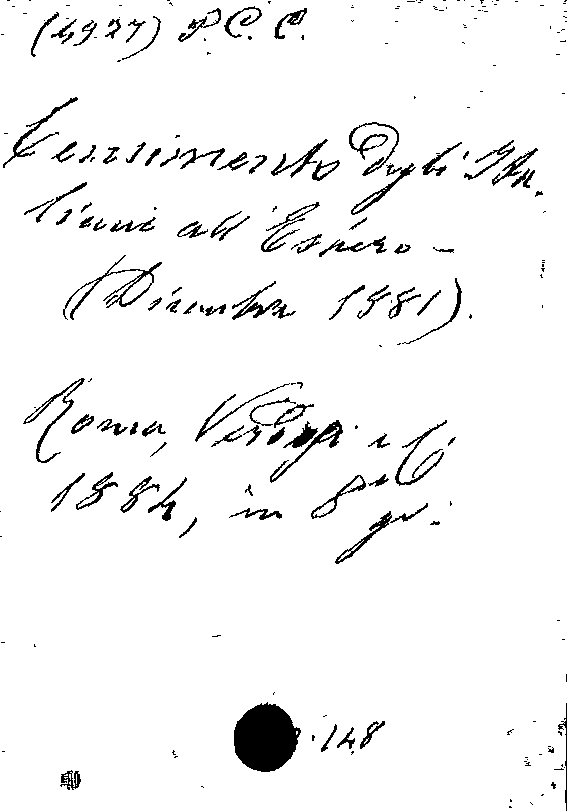 (4927) P. C. C.
Censimento degli Ita-
liani all' Estero -
(Dicembre 1881).
Roma, e C.i
1884, in 8° gr.
148